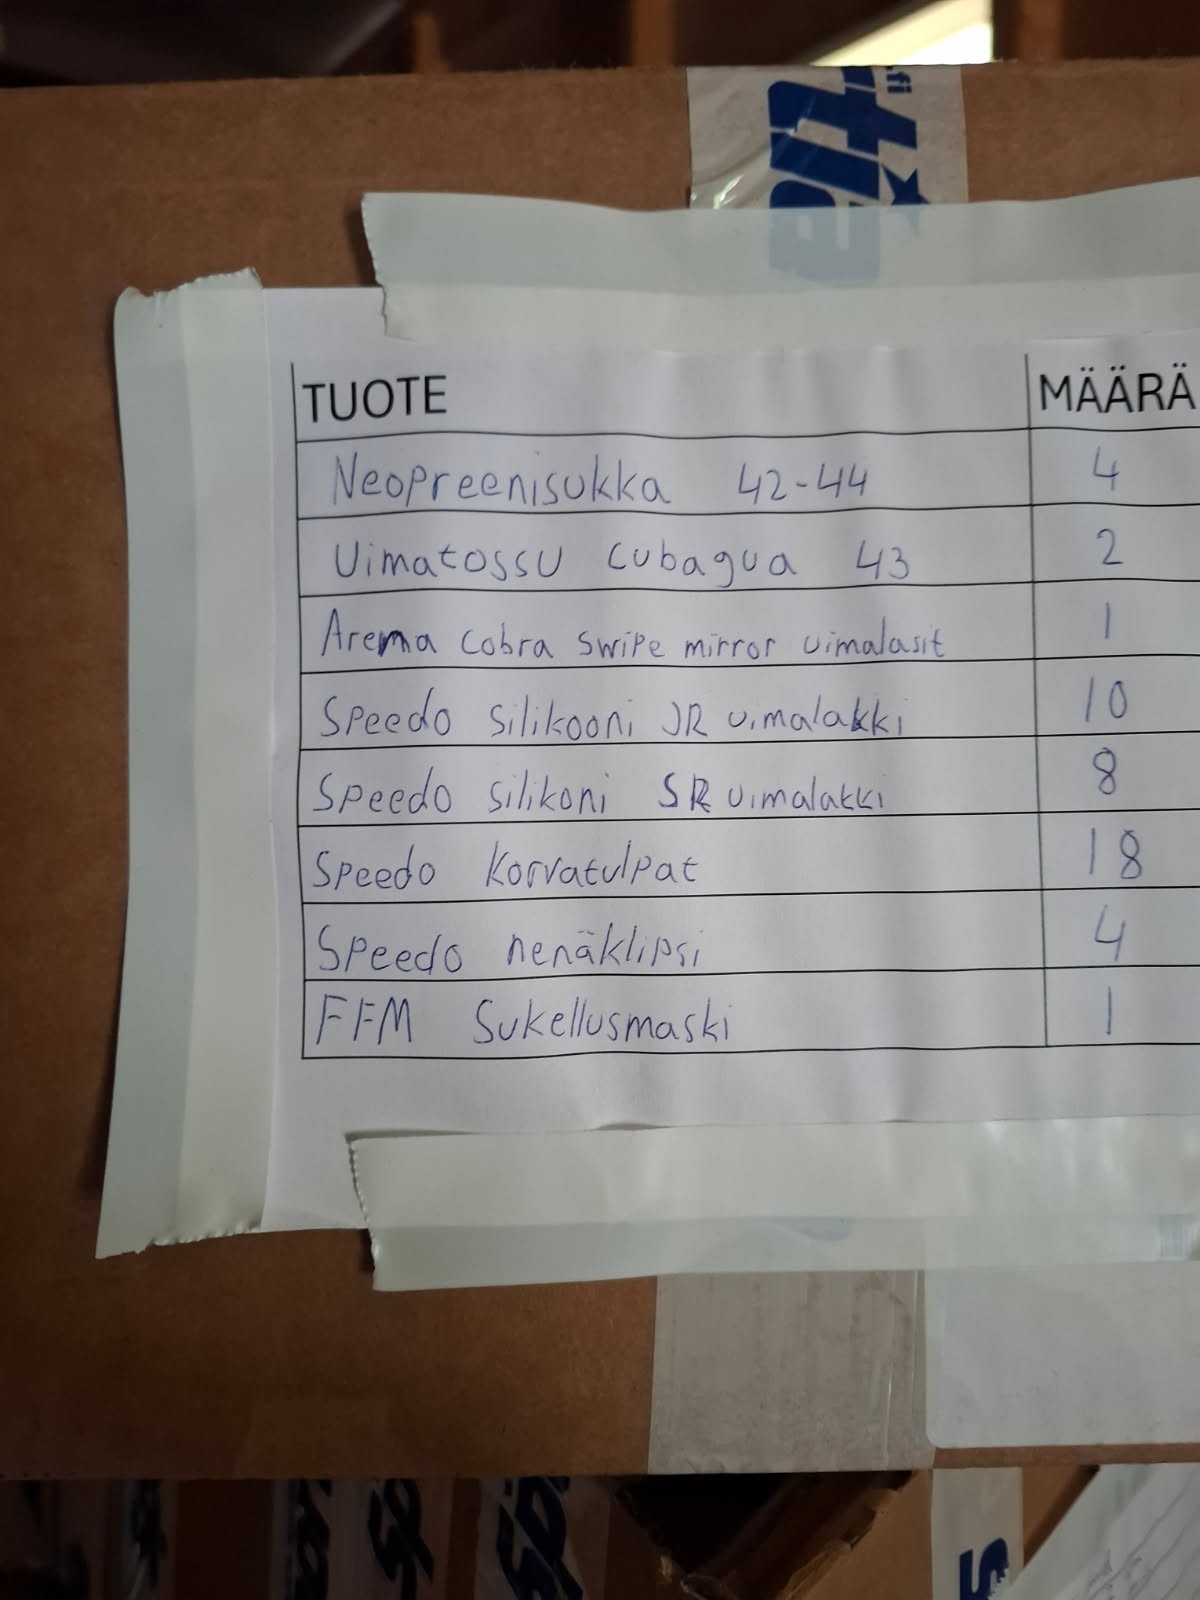 .fi
TUOTE MÄÄRÄ
Neopreenisukka 42-44 4
Uimatossu Cubagua 43 2
Arema Cobra Swipe mirror uimalasit 1
Speedo silikooni JR uimalakki 10
Speedo silikoni SR uimalakki 8
Speedo Korvatulpat 18
Speedo nenäklipsi 4
FFM Sukellusmaski 1